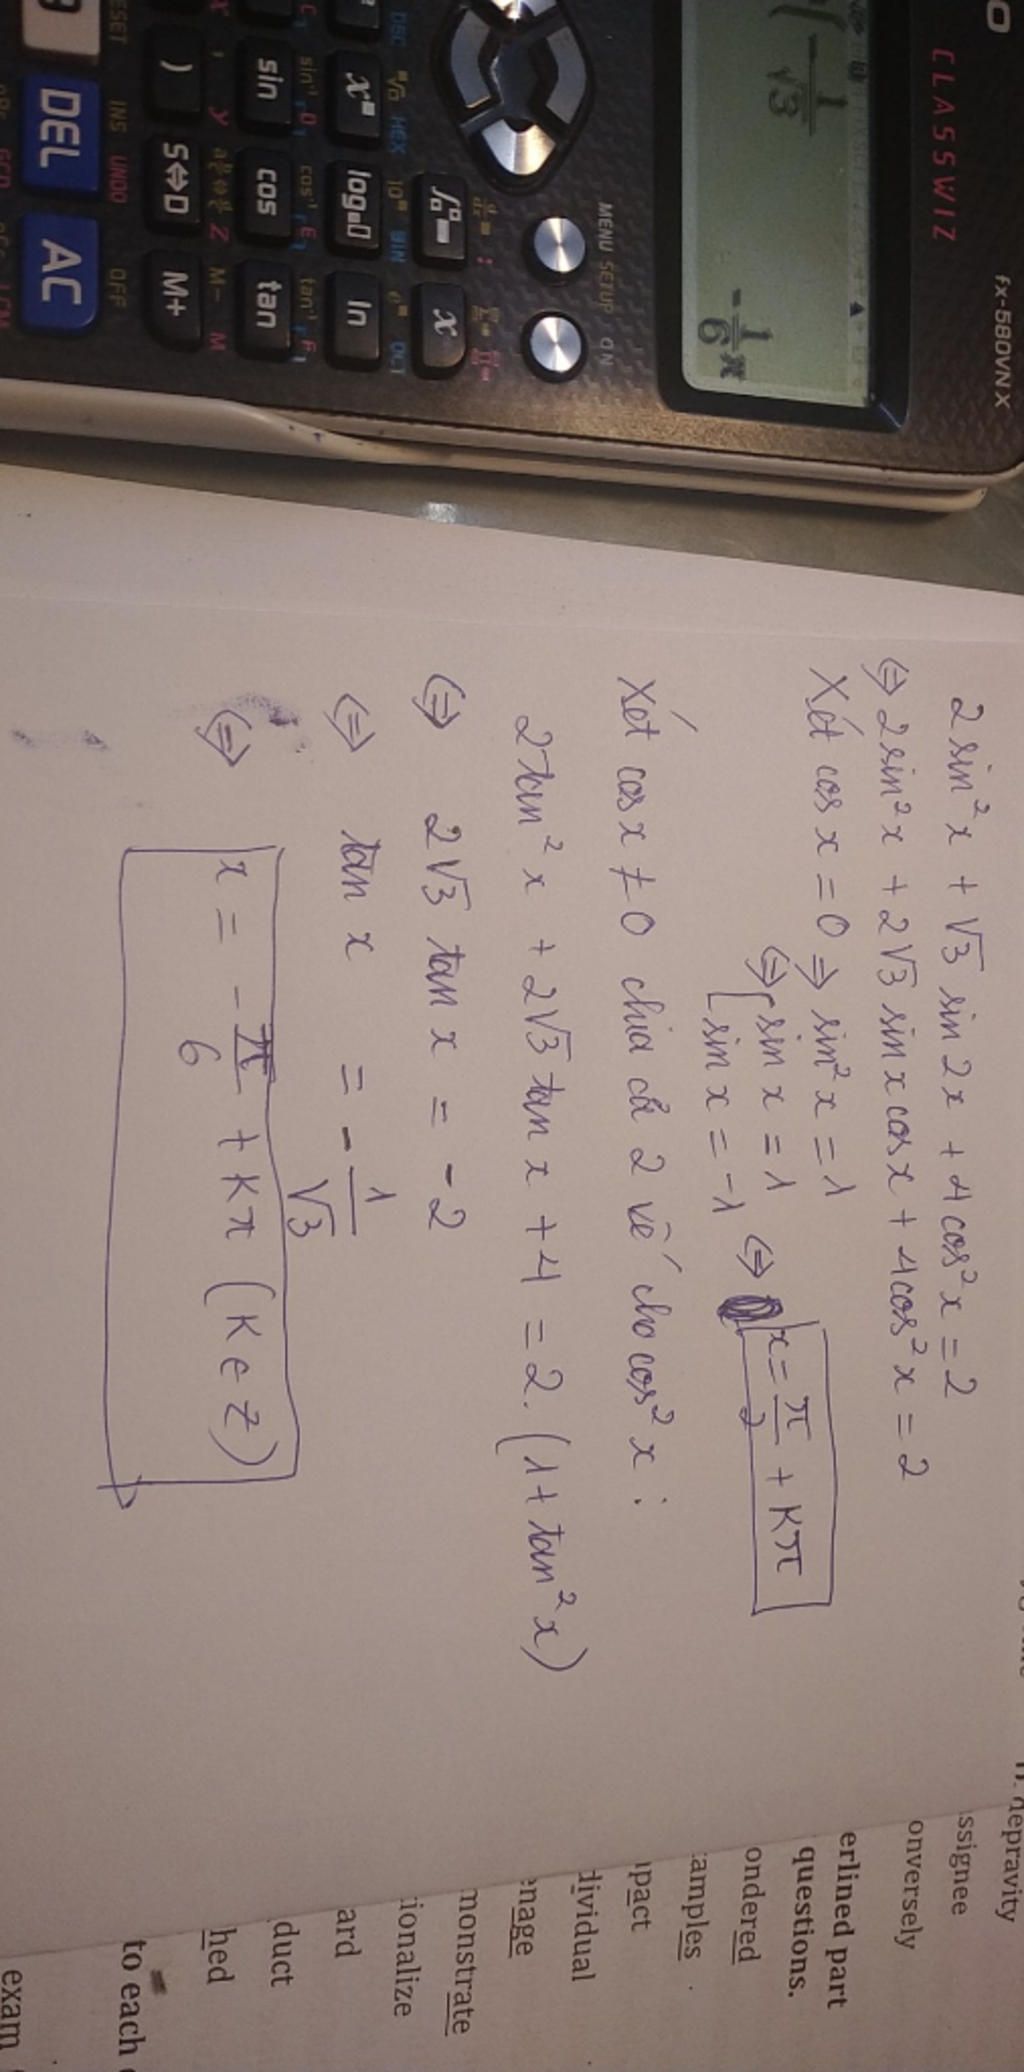 CLASSWIZ
fx-580VN X
-1/√3
-1/6 π
MENU SETUP
ON
DEL
AC
sin
cos
tan
S⇔D
M+
ln
INS
UNDO
OFF
2 sin² x + √3 sin 2x + 4 cos² x = 2
⇔ 2 sin² x + 2√3 sin x cos x + 4 cos² x = 2
Xét cos x = 0 ⇒ sin² x = 1
⇔ [ sin x = 1
sin x = -1 ⇔ x = π/2 + Kπ
Xét cos x ≠ 0 chia cả 2 vế cho cos² x :
2 tan² x + 2√3 tan x + 4 = 2. (1 + tan² x)
⇔ 2√3 tan x = -2
⇔ tan x = - 1/√3
⇔ x = - π/6 + Kπ (K ∈ Z)
depravity
ssignee
onversely
erlined part
questions.
ondered
amples
pact
dividual
enage
monstrate
ionalize
ard
duct
hed
to each
exam